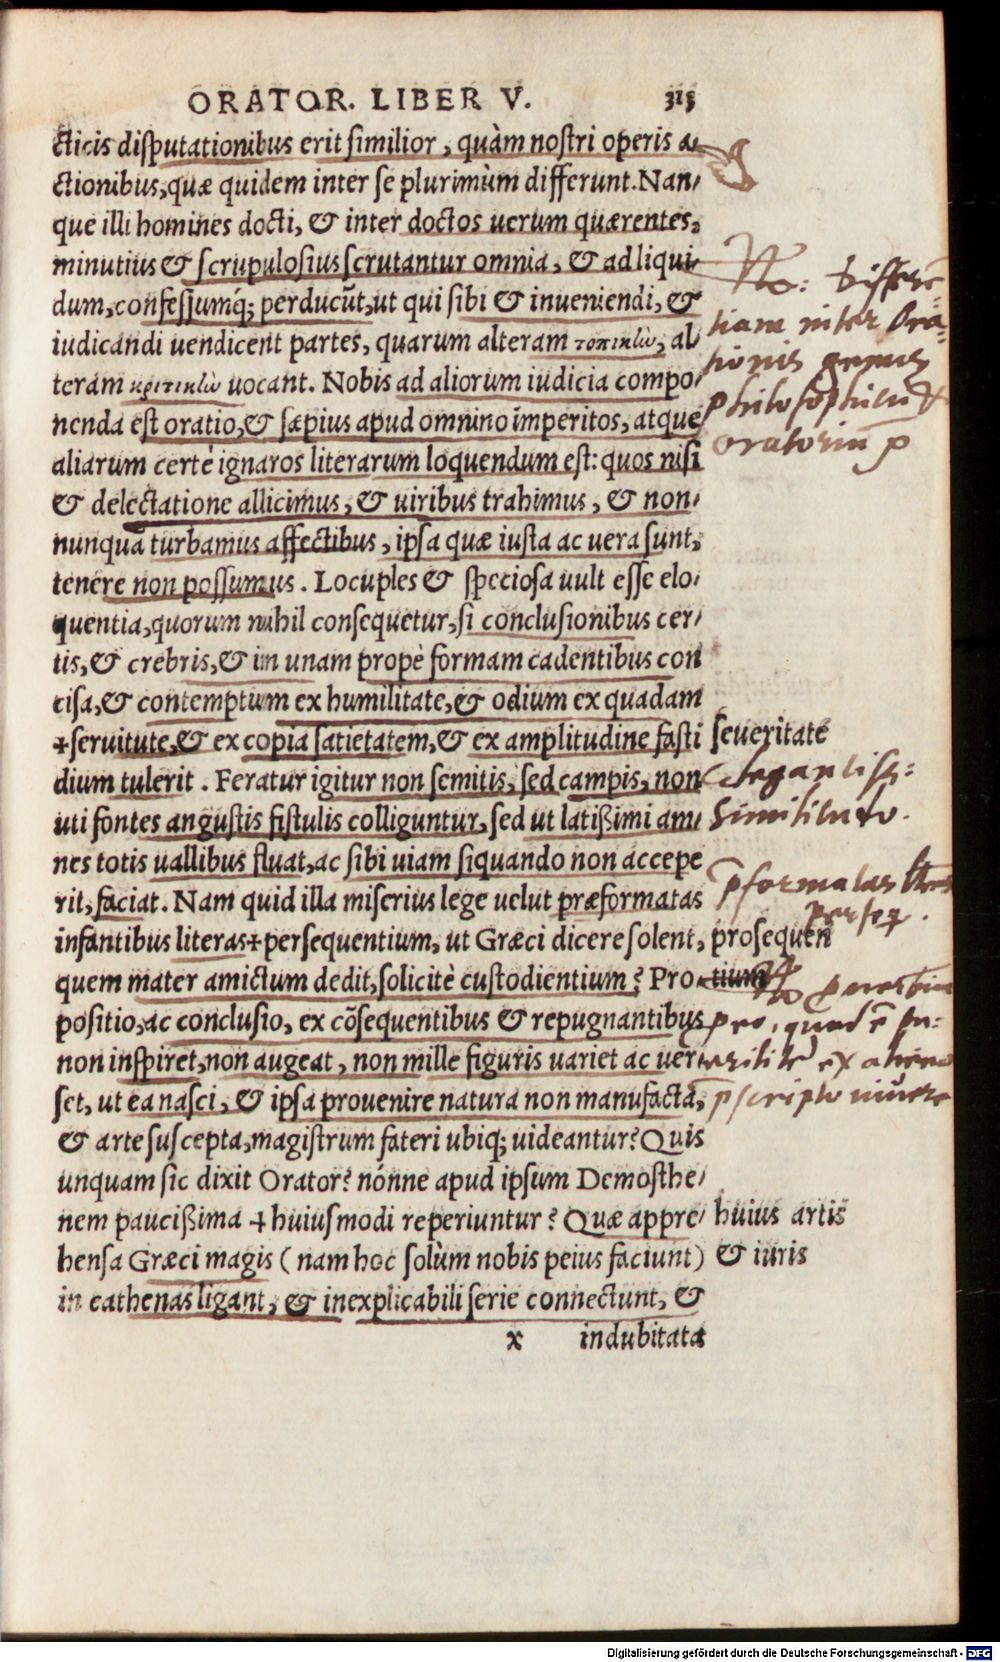 ORATOR. LIBER V. 313
cticis disputationibus erit similior, quàm nostri operis a-
ctionibus, quæ quidem inter se plurimùm differunt. Nan-
que illi homines docti, & inter doctos uerum quærentes,
minutius & scrupulosius scrutantur omnia, & ad liqui-
dum, confessumq́; perducūt, ut qui sibi & inueniendi, &
iudicandi uendicent partes, quarum alteram τοπικὼ, al-
teram κριτικὼ uocant. Nobis ad aliorum iudicia compo-
nenda est oratio, & sæpius apud omnino imperitos, atque
aliarum certè ignaros literarum loquendum est: quos nisi
& delectatione allicimus, & uiribus trahimus, & non-
nunquā turbamus affectibus, ipsa quæ iusta ac uera sunt,
tenere non possumus. Locuples & speciosa uult esse elo-
quentia, quorum nihil consequetur, si conclusionibus cer-
tis, & crebris, & in unam propè formam cadentibus con
cisa, & contemptum ex humilitate, & odium ex quadam
+seruitute, & ex copia satietatem, & ex amplitudine fasti seueritate
dium tulerit. Feratur igitur non semitis, sed campis, non
uti fontes angustis fistulis colliguntur, sed ut latißimi am-
nes totis uallibus fluat, ac sibi uiam siquando non accepe
rit, faciat. Nam quid illa miserius lege uelut præformatas
infantibus literas+persequentium, ut Græci dicere solent, prosequen
quem mater amictum dedit, solicitè custodientium? Pro- tium
positio, ac conclusio, ex cōsequentibus & repugnantibus
non inspiret, non augeat, non mille figuris uariet ac uer-
set, ut ea nasci, & ipsa prouenire natura non manufacta,
& arte suscepta, magistrum fateri ubiq; uideantur? Quis
unquam sic dixit Orator? nónne apud ipsum Demosthe-
nem paucißima + huiusmodi reperiuntur? Quæ appre- huius artis
hensa Græci magis (nam hoc solùm nobis peius faciunt) & iuris
in cathenas ligant, & inexplicabili serie connectunt, &
x indubitata
No: differē-
tiam inter Ora-
tionis genus
philosophicū &
oratoriū
Elegantiss:
similitudo.
p̄formatas lrās
perseq.
Digitalisierung gefördert durch die Deutsche Forschungsgemeinschaft - DFG